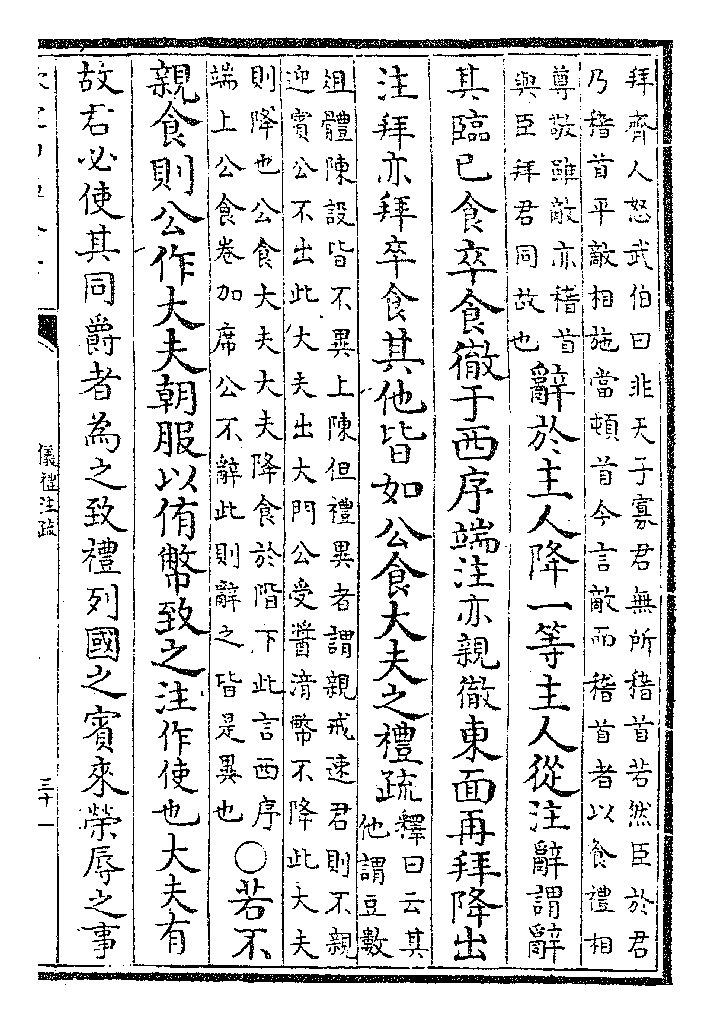 拜齊人怒武伯曰非天子寡君無所稽首若然臣於君
乃稽首平敵相施當頓首今言敵而稽首者以食禮相
尊敬雖敵亦稽首
與臣拜君同故也
辭於主人降一等主人從注辭謂辭
其臨已食卒食徹于西序端注亦親徹東面再拜降出
注拜亦拜卒食其他皆如公食大夫之禮疏
釋曰云其
他謂豆數
俎體陳設皆不異上陳但禮異者謂親戒速君則不親
迎賓公不出此大夫出大門公受醬湆幣不降此大夫
則降也公食大夫大夫降食於階下此言西序
端上公食卷加席公不辭此則辭之皆是異也
○若不
親食則公作大夫朝服以侑幣致之注作使也大夫有
故君必使其同爵者為之致禮列國之賓來榮辱之事
儀禮注疏
三十一